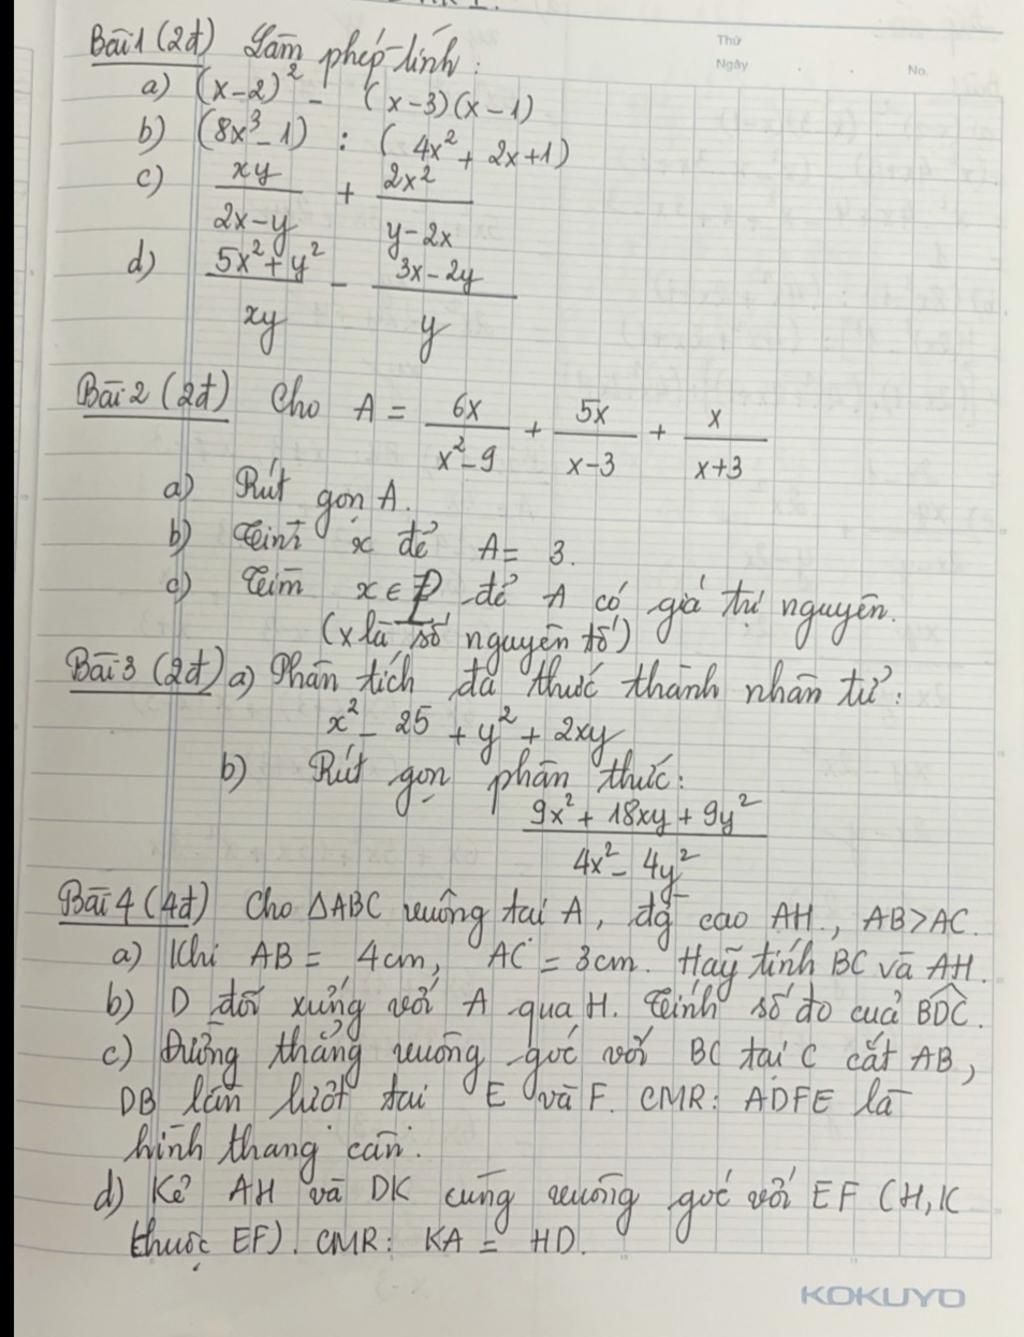 Thứ
Ngày . . No.
Bài 1 (2đ) Làm phép tính :
a) (x-2)² - (x-3)(x-1)
b) (8x³-1) : (4x²+2x+1)
c) xy/(2x-y) + 2x²/(y-2x)
d) (5x²+y²)/xy - (3x-2y)/y
Bài 2 (2đ) Cho A = 6x/(x²-9) + 5x/(x-3) + x/(x+3)
a) Rút gọn A.
b) Tính x để A = 3.
c) Tìm x ∈ P để A có giá trị nguyên.
(x là số nguyên tố)
Bài 3 (2đ) a) Phân tích đa thức thành nhân tử:
x² - 25 + y² + 2xy
b) Rút gọn phân thức:
(9x² + 18xy + 9y²)/(4x² - 4y²)
Bài 4 (4đ) Cho ΔABC vuông tại A, đg cao AH, AB>AC.
a) Khi AB = 4cm, AC = 3cm. Hãy tính BC và AH.
b) D đối xứng với A qua H. Tính số đo của BDC.
c) Đường thẳng vuông góc với BC tại C cắt AB,
DB lần lượt tại E và F. CMR: ADFE là
hình thang cân.
d) Kẻ AH và DK cùng vuông góc với EF (H,K
thuộc EF). CMR: KA = HD.
KOKUYO